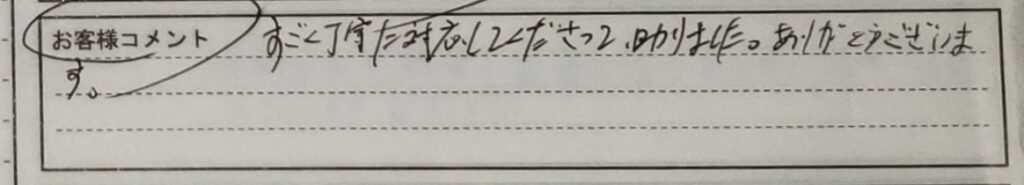 お客様コメント すごく丁寧な対応してくださって、助かりました。ありがとうございま
す。